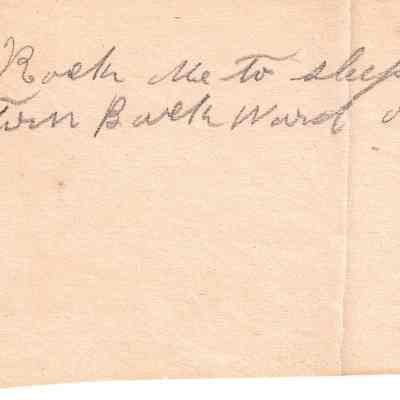 Rock Me to sleep
Turn Back Ward